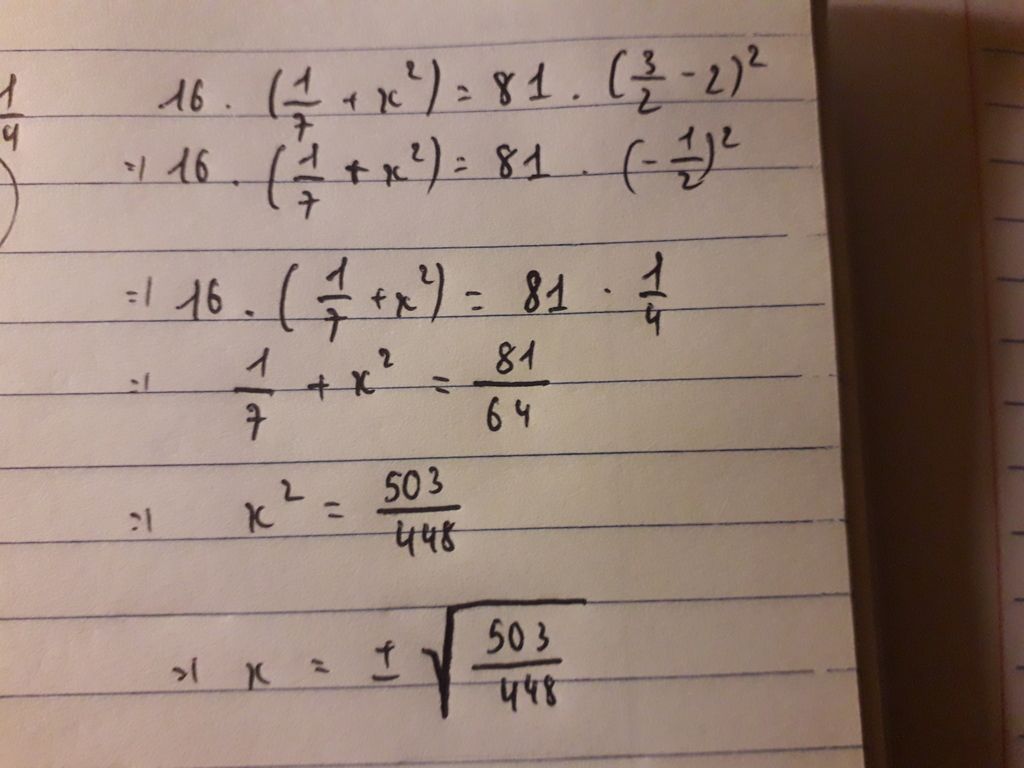 1/4
16 . (1/7 + x²) = 81 . (3/2 - 2)²
=) 16 . (1/7 + x²) = 81 . (-1/2)²
=) 16 . (1/7 + x²) = 81 . 1/4
=) 1/7 + x² = 81/64
=) x² = 503/448
=) x = ± √(503/448)